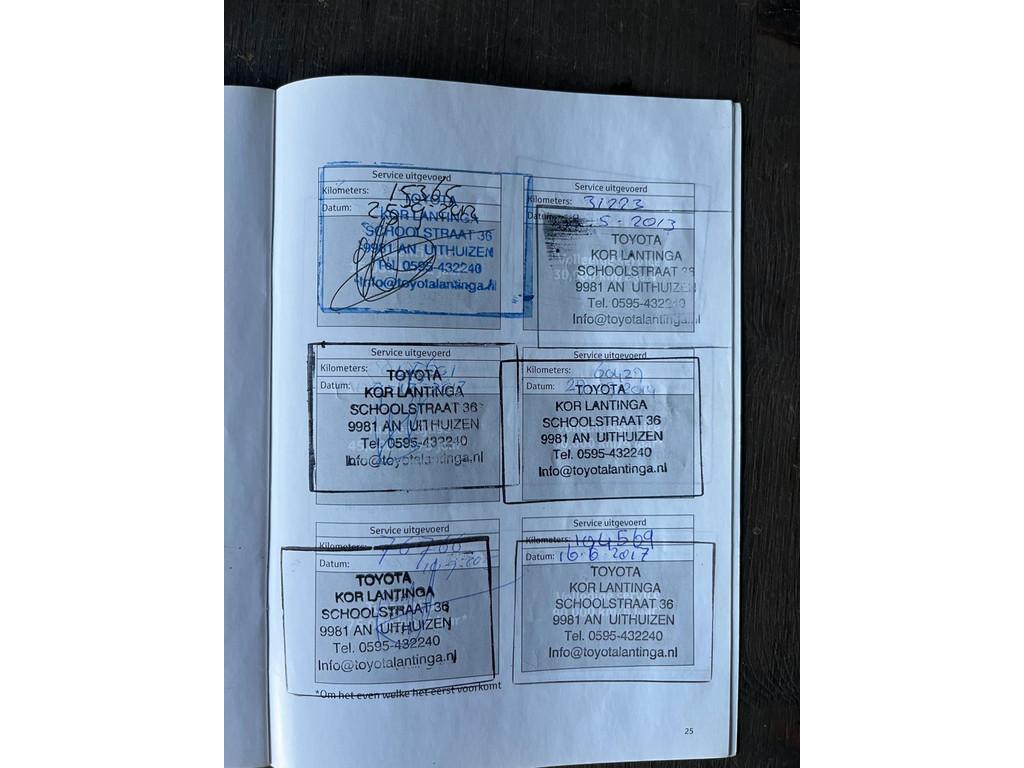 Service uitgevoerd
Kilometers: 15365
Datum:
TOYOTA
KOR LANTINGA
SCHOOLSTRAAT 36
9981 AN UITHUIZEN
Tel. 0595-432240
Info@toyotalantinga.nl
Service uitgevoerd
Kilometers: 31223
Datum: 5-2013
TOYOTA
KOR LANTINGA
SCHOOLSTRAAT 36
9981 AN UITHUIZEN
Tel. 0595-432240
Info@toyotalantinga.nl
Service uitgevoerd
Kilometers:
Datum:
TOYOTA
KOR LANTINGA
SCHOOLSTRAAT 36
9981 AN UITHUIZEN
Tel. 0595-432240
Info@toyotalantinga.nl
Service uitgevoerd
Kilometers: 60429
Datum: 2014
TOYOTA
KOR LANTINGA
SCHOOLSTRAAT 36
9981 AN UITHUIZEN
Tel. 0595-432240
Info@toyotalantinga.nl
Service uitgevoerd
Kilometers: 76766
Datum:
TOYOTA
KOR LANTINGA
SCHOOLSTRAAT 36
9981 AN UITHUIZEN
Tel. 0595-432240
Info@toyotalantinga.nl
Service uitgevoerd
Kilometers: 104569
Datum: 16-6-2017
TOYOTA
KOR LANTINGA
SCHOOLSTRAAT 36
9981 AN UITHUIZEN
Tel. 0595-432240
Info@toyotalantinga.nl
*Om het even welke het eerst voorkomt
25